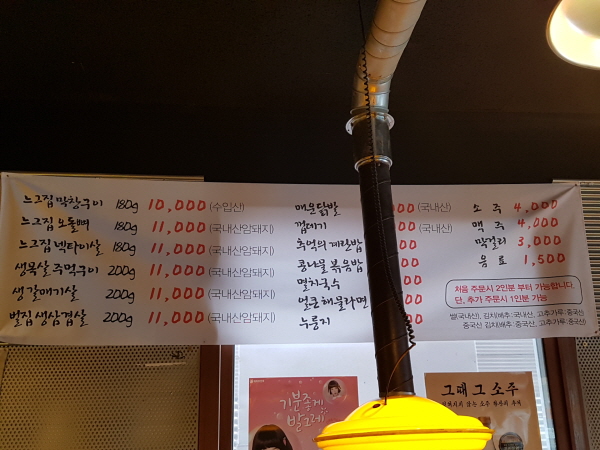 느그집 막창구이 180g 10,000 (수입산)
느그집 오돌뼈 180g 11,000 (국내산암돼지)
느그집 넥타이살 180g 11,000 (국내산암돼지)
생목살 주먹구이 200g 11,000 (국내산암돼지)
생갈매기살 200g 11,000 (국내산암돼지)
벌집 생삼겹살 200g 11,000 (국내산암돼지)
매운닭발 (국내산)
껍데기 (국내산)
추억의 계란밥
콩나물 볶음밥
멸치국수
얼큰해물라면
누룽지
소 주 4,000
맥 주 4,000
막걸리 3,000
음 료 1,500
처음 주문시 2인분 부터 가능합니다.
단, 추가 주문시 1인분 가능
쌀(국내산), 김치(배추:국내산, 고추가루:중국산)
중국산 김치(배추:중국산, 고추가루:중국산)
기분좋게
발그레
그때 그 소주